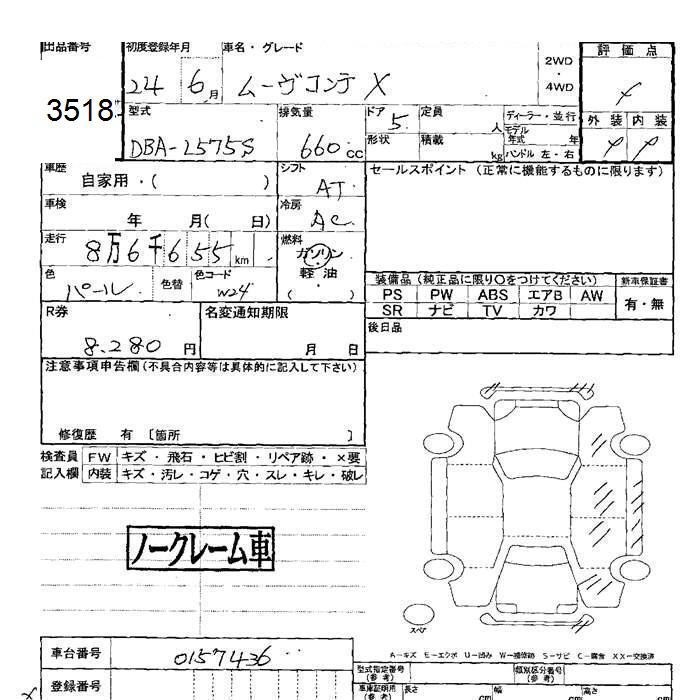 出品番号 初度登録年月 車名・グレード 評価点
24 6月 ムーヴコンテ X 2WD・4WD
3518
型式 排気量 ドア 定員 ディーラー・並行 外装 内装
DBA-L575S 660cc 5 人 モデル年式 年
形状 積載 kg ハンドル 左・右
車歴 シフト セールスポイント (正常に機能するものに限ります)
自家用・( ) AT
車検 冷房
年 月( 日) AC
走行 燃料
8万6千655km ガソリン・軽油
色 色替 色コード ( )
パール W24
装備品 (純正品に限り○をつけてください) 新車保証書
PS PW ABS エアB AW 有・無
SR ナビ TV カワ
R券 名変通知期限 後日品
8,280円 月 日
注意事項申告欄 (不具合内容等は具体的に記入して下さい)
修復歴 有 〔箇所 〕
検査員 FW キズ・飛石・ヒビ割・リペア跡・×要
記入欄 内装 キズ・汚レ・コゲ・穴・スレ・キレ・破レ
ノークレーム車
スペア
A-キズ E-エクボ U-凹み W-補修跡 S-サビ C-腐食 XX-交換済
車台番号 0157436
型式指定番号(参考) 類別区分番号(参考)
登録番号
車庫証明用(参考) 長さ cm 幅 cm 高さ cm